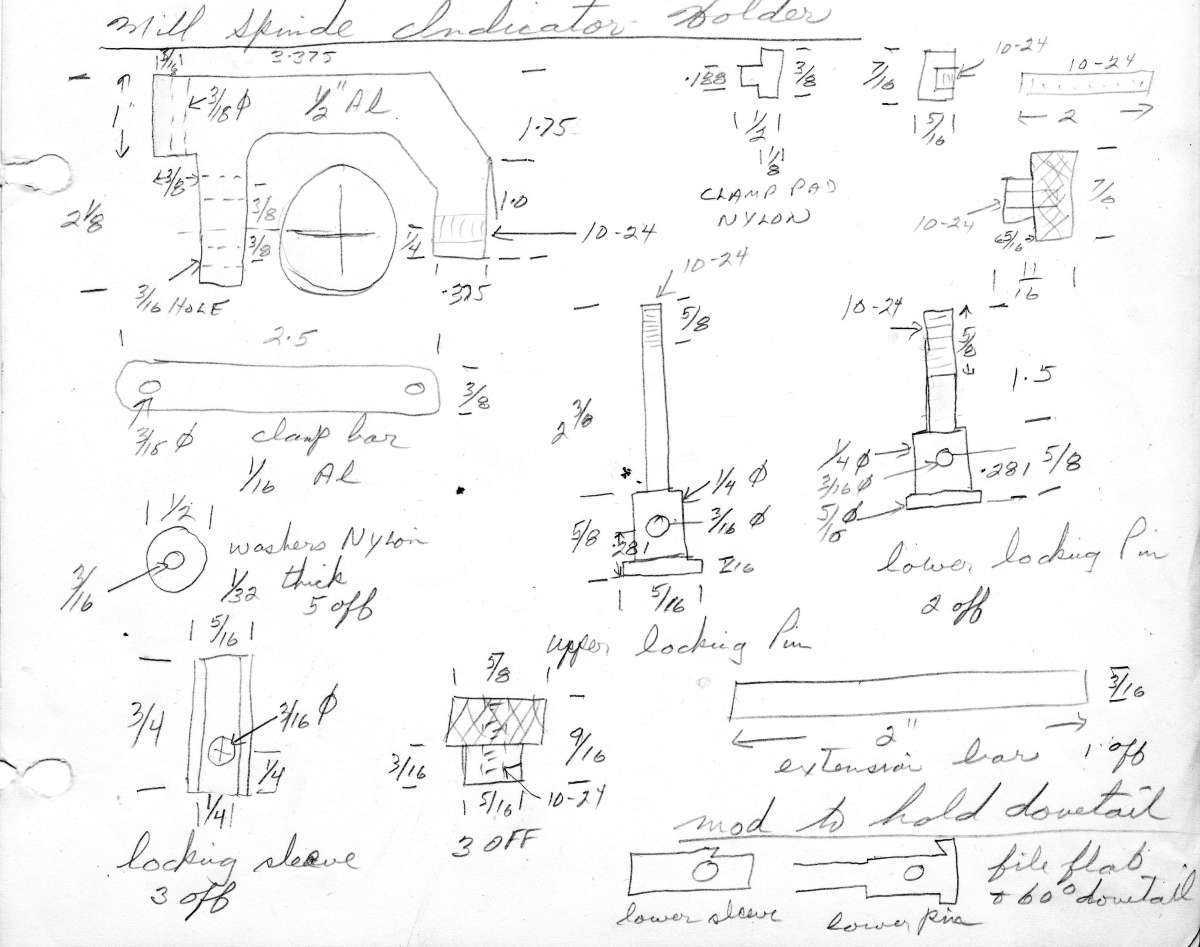 Mill Spinde Indicator Holder
3/16
3.375
3/8
3/16 Φ
1/2" Al
1"
1.75
3/8
2 1/8
3/8
3/8
1.0
1/4
10-24
3/16 HOLE
.375
.188
3/8
1/2
1/8
CLAMP PAD
NYLON
7/16
10-24
5/16
10-24
2
10-24
5/16
11/16
2.5
3/8
3/16 Φ
clamp bar
1/16 Al
10-24
5/8
2 3/8
1/4 Φ
3/16 Φ
5/8
.281
1/16
5/16
upper locking Pin
10-24
5/8
1.5
1/4 Φ
3/16 Φ
.281
5/8
5/16 Φ
lower locking Pin
2 off
1/2
3/16
washers NYLON
1/32 thick
5 off
5/16
3/4
3/16 Φ
1/4
1/4
locking sleeve
3 off
5/8
9/16
3/16
5/16
10-24
3 OFF
3/16
2"
extension bar 1 off
mod to hold dovetail
file flat
60° dovetail
lower sleeve
lower pin